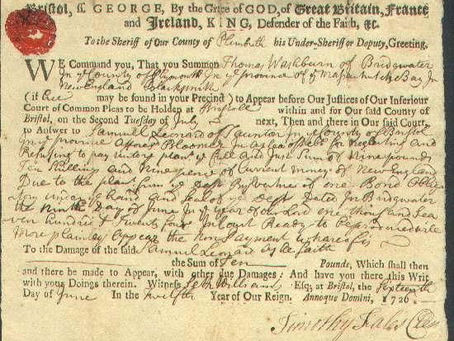 Bristol, ss. GEORGE, By the Grace of GOD, of Great Britain, France
and Ireland, KING, Defender of the Faith, &c.
To the Sheriff of Our County of Plimouth his Under-Sheriff or Deputy, Greeting.
WE Command you, That you Summon Thomas Washburn of Bridgwater
In ye County of Plymouth In ye province of ye Massachusets Bay In
New England Blacksmith
(if Hee may be found in your Precinct) to Appear before Our Justices of Our Inferiour
Court of Common Pleas to be Holden at Bristoll within and for Our said County of
Bristol, on the Second Tuesday of July next, Then and there in Our said Court
to Answer to Samuel Leonard of Taunton In ye County of Bristol
In ye province Bloomer In
Refusing to pay unto ye plant ye Full And Just Sum of Nine pounds
Ten Shilling and Nine pence of Current money of New England
Due to the plant from ye Deft By Virtue of one Bond
under hand and Seal of ye Deft Dated In Bridgwater
the Ninth Day of June In ye year of our Lord one thousand Sea
ven hundred & Twenty four In Court Ready to be produced
More plainly Appear the Non payment whereof is
To the Damage of the said Samuel Leonard as he saith
the Sum of Ten Pounds, Which shall then
and there be made to Appear, with other due Damages: And have you there this Writ
with your Doings therein. Witness Seth Williams, Esq; at Bristol, the Sixteenth
Day of June In the twelfth Year of Our Reign. Annoque Domini, 1726.
Timothy Fales Cler